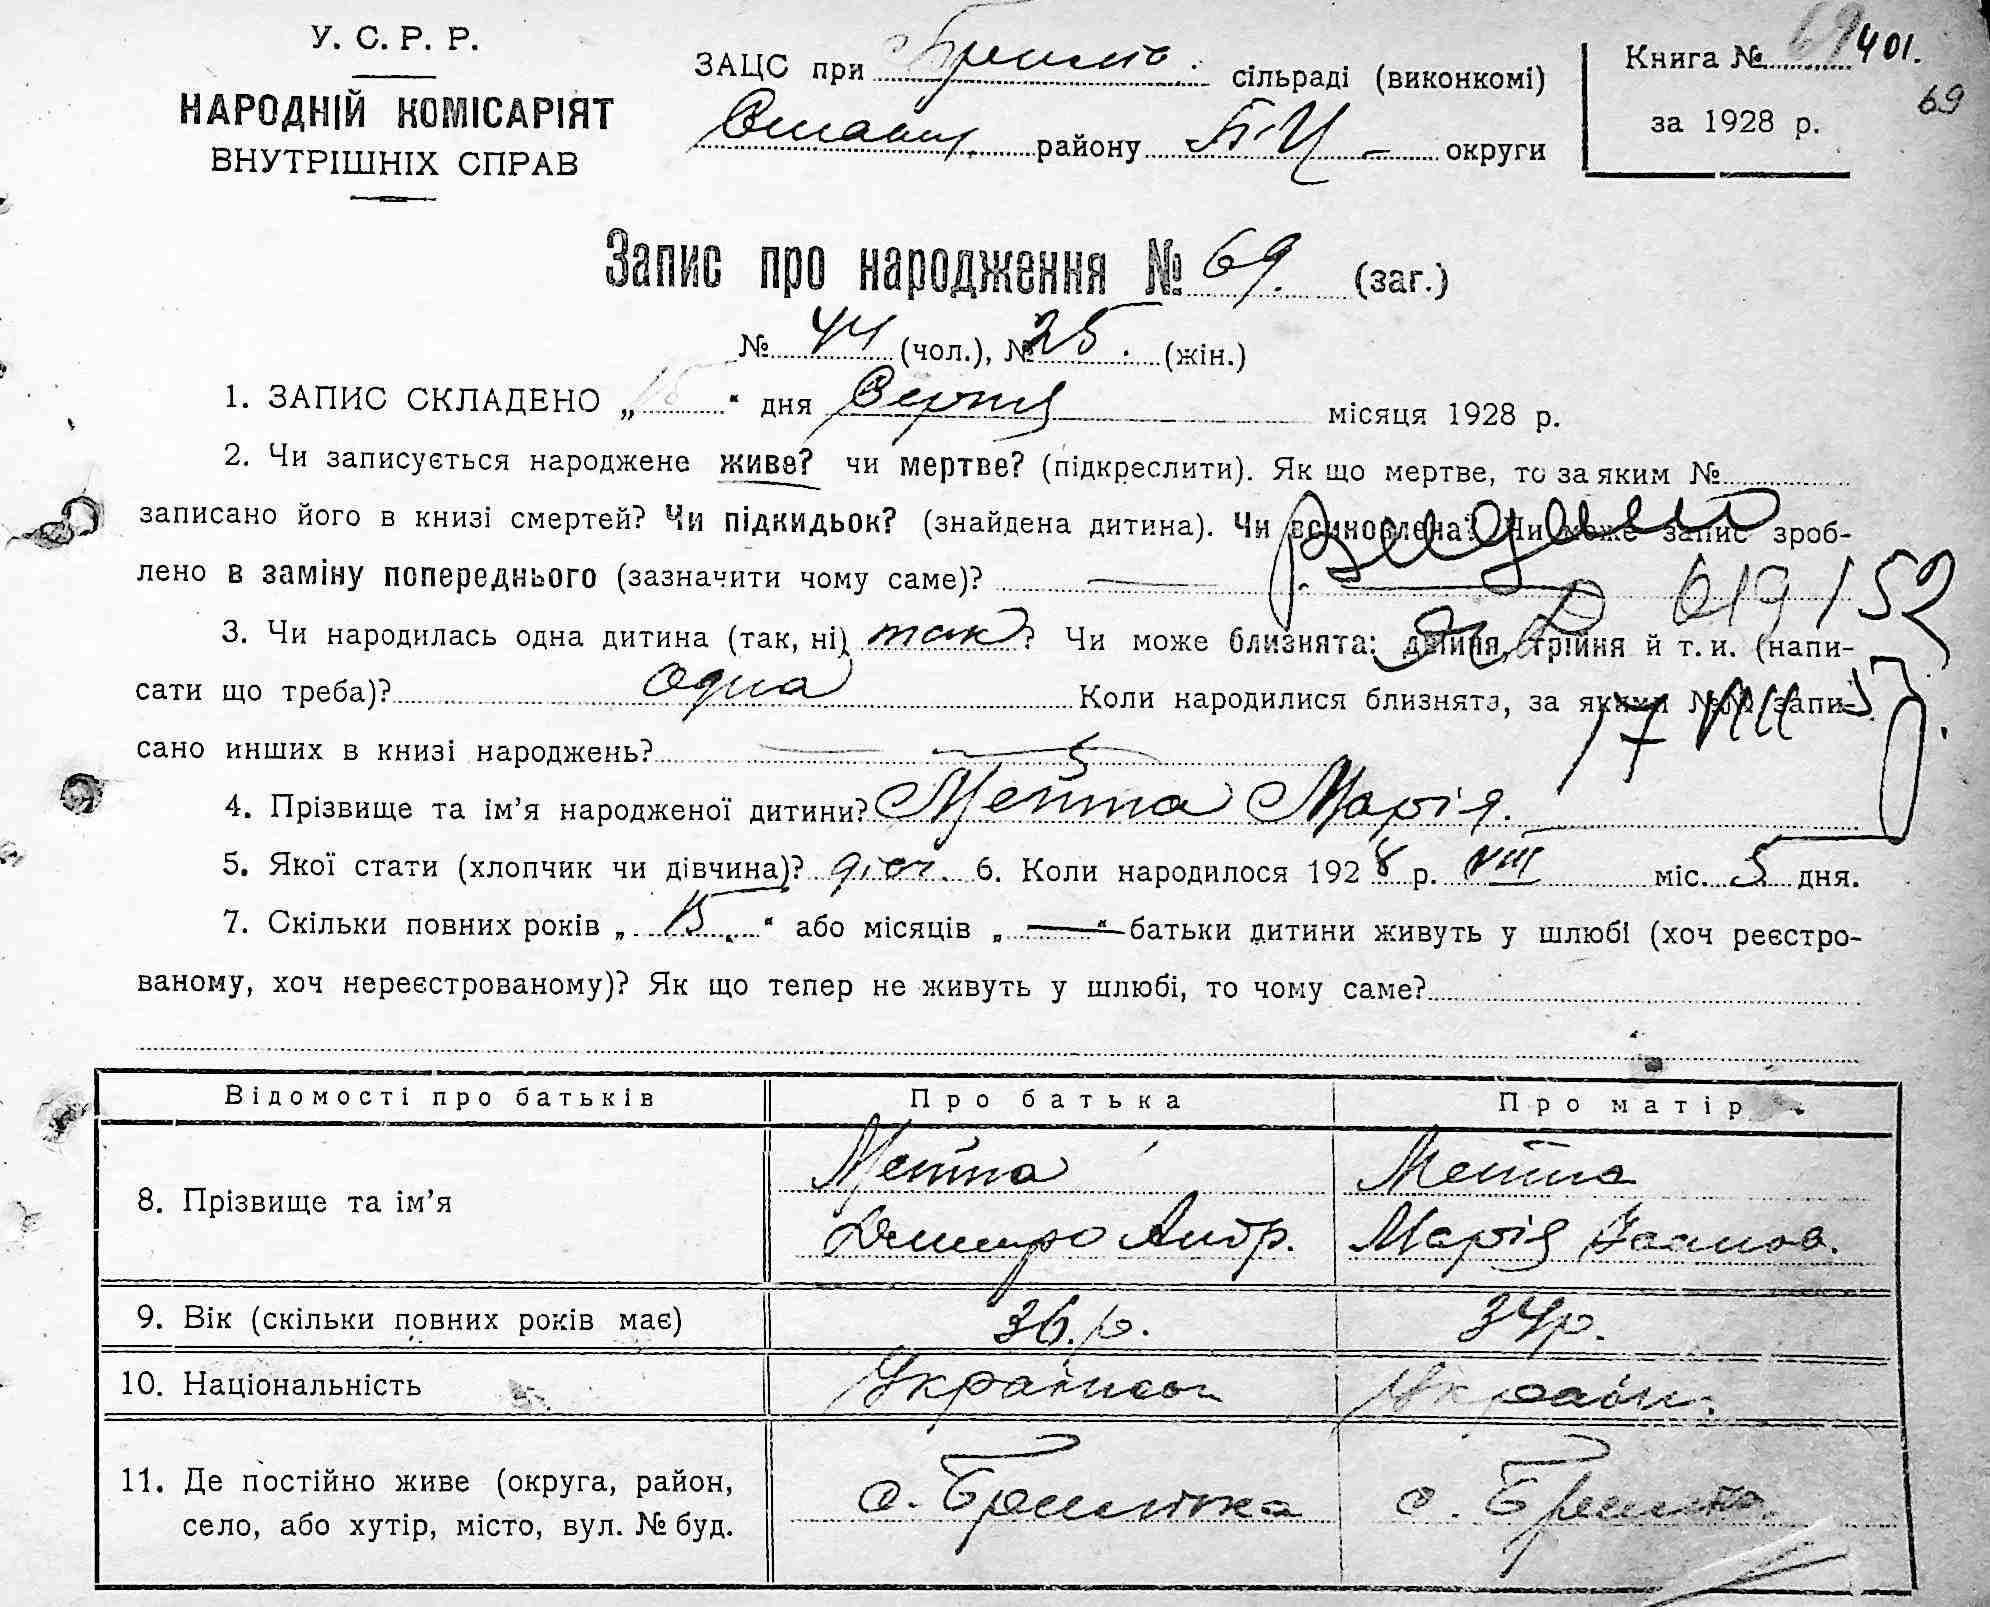 У. С. Р. Р.
НАРОДНІЙ КОМІСАРІЯТ
ВНУТРІШНІХ СПРАВ
ЗАЦС при сільраді (виконкомі)
району Б-Ц – округи
Книга № 69 401.
69
за 1928 р.
Запис про народження № 69. (заг.)
№ 44 (чол.), № 25. (жін.)
1. ЗАПИС СКЛАДЕНО „ 15 “ дня Серпня місяця 1928 р.
2. Чи записується народжене живе? чи мертве? (підкреслити). Як що мертве, то за яким №
записано його в книзі смертей? Чи підкидьок? (знайдена дитина). Чи всиновлена? Чи може запис зроб-
лено в заміну попереднього (зазначити чому саме)? —
Видано
619152
17 VIII 57
3. Чи народилась одна дитина (так, ні) так? Чи може близнята: двійня, трійня й т. и. (напи-
сати що треба)? одна Коли народилися близнята, за якими №№ запи-
сано инших в книзі народжень? —
4. Прізвище та ім’я народженої дитини? Мейта Марія.
5. Якої стати (хлопчик чи дівчина)? дівч. 6. Коли народилося 1928 р. VIII міс. 5 дня.
7. Скільки повних років „ 15 “ або місяців „ — “ батьки дитини живуть у шлюбі (хоч реєстро-
ваному, хоч нереєстрованому)? Як що тепер не живуть у шлюбі, то чому саме?
Відомості про батьків Про батька Про матір
8. Прізвище та ім’я
Мейта
Дмитро Андр.
Мейта
Марія Іванов.
9. Вік (скільки повних років має) 36 р. 34 р.
10. Національність Українець Україн.
11. Де постійно живе (округа, район,
село, або хутір, місто, вул. № буд.
с.
с.